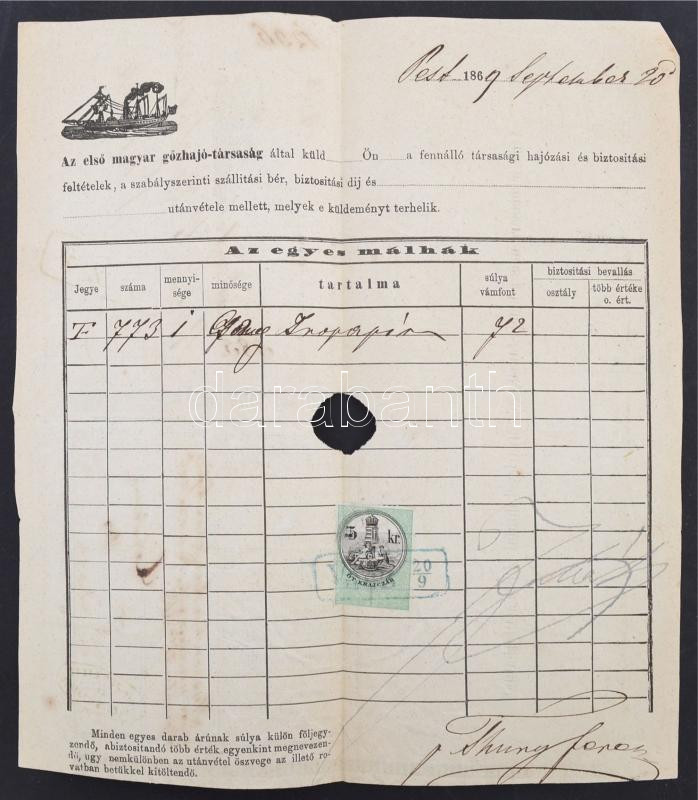 Pest 1869 September 20
Az első magyar gőzhajó-társaság által küld Ön a fennálló társasági hajózási és biztositási
feltételek, a szabályszerinti szállitási bér, biztositási dij és
utánvétele mellett, melyek e küldeményt terhelik.
Az egyes málhák
Jegye száma mennyi-sége minősége tartalma súlya vámfont biztositási bevallás
osztály több értéke o. ért.
T 773 1 Irópapir 72
darabanth
5 kr.
ÖT KRAJCZÁR
20
9
Minden egyes darab árúnak súlya külön följegy-
zendő, abiztositandó több érték egyenkint megnevezen-
dő, ugy nemkülönben az utánvétel öszvege az illető ro-
vatban betükkel kitöltendő.